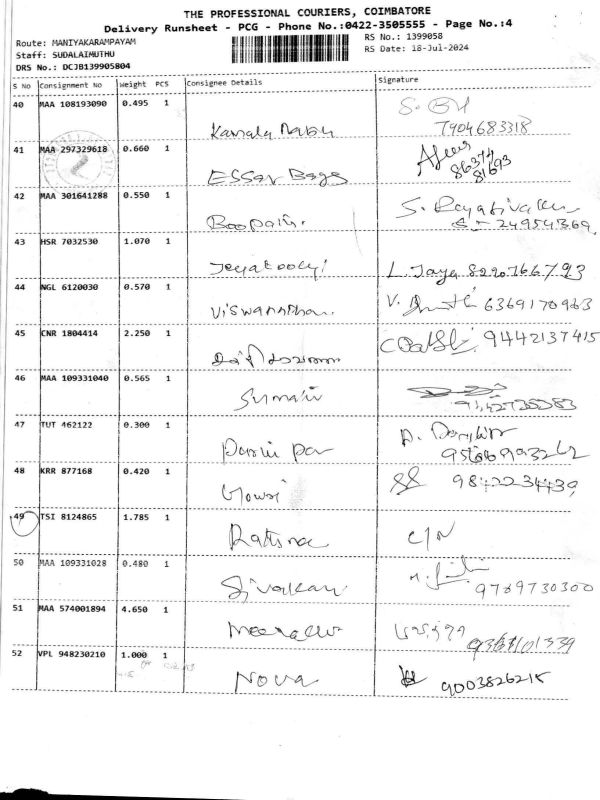 THE PROFESSIONAL COURIERS, COIMBATORE
Delivery Runsheet - PCG - Phone No.:0422-3505555 - Page No.:4
Route: MANIYAKARAMPAYAM
RS No.: 1399058
Staff: SUDALAIMUTHU
RS Date: 18-Jul-2024
DRS No.: DCJB139905804
S No Consignment No Weight PCS Consignee Details Signature
40 MAA 108193090 0.495 1
Kamala Babu 7904683318
41 MAA 297329618 0.660 1
ESSar Bags 86374 81693
42 MAA 301641288 0.550 1
Boopathi.
43 HSR 7032530 1.070 1
L. Jaya 8220766793
44 NGL 6120030 0.570 1
Viswanathan. V. 6369170963
45 CNR 1804414 2.250 1
9442137415
46 MAA 109331040 0.565 1
Sumathi
47 TUT 462122 0.300 1
48 KRR 877168 0.420 1
Gowri
49 TSI 8124865 1.785 1
Rathna C/N
50 MAA 109331028 0.480 1
Sivakami 9789730300
51 MAA 574001894 4.650 1
52 VPL 948230210 1.000 1
Nova 9003826215